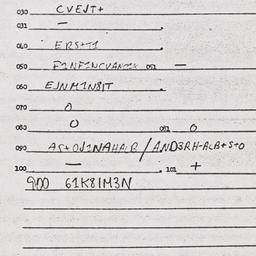 030 CVEJT+
031 —
040 ERS+T1
050 F1NF1NCVANT1K 051 —
060 EJNM1N8IT
070 0
080 0 081 0
090 AS+OJ1NAHALB/AND3RH-ALB+S+O
100 — 101 +
900 61K8IM3N